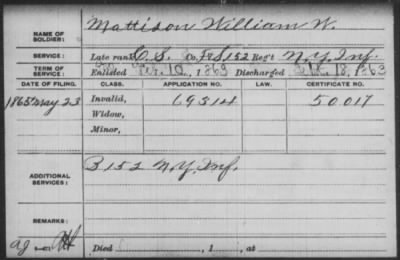 NAME OF SOLDIER: Mattison William W.
SERVICE: Late rank O.S., Co. F&S 152 Reg't N.Y. Inf.
TERM OF SERVICE: Enlisted Feb. 10, 1863 Discharged 18, 1863
DATE OF FILING. CLASS. APPLICATION NO. LAW. CERTIFICATE NO.
1865 May 23 Invalid, 69314 50017
Widow,
Minor,
ADDITIONAL SERVICES: B 152 N.Y. Inf.
REMARKS:
Died , 1 , at